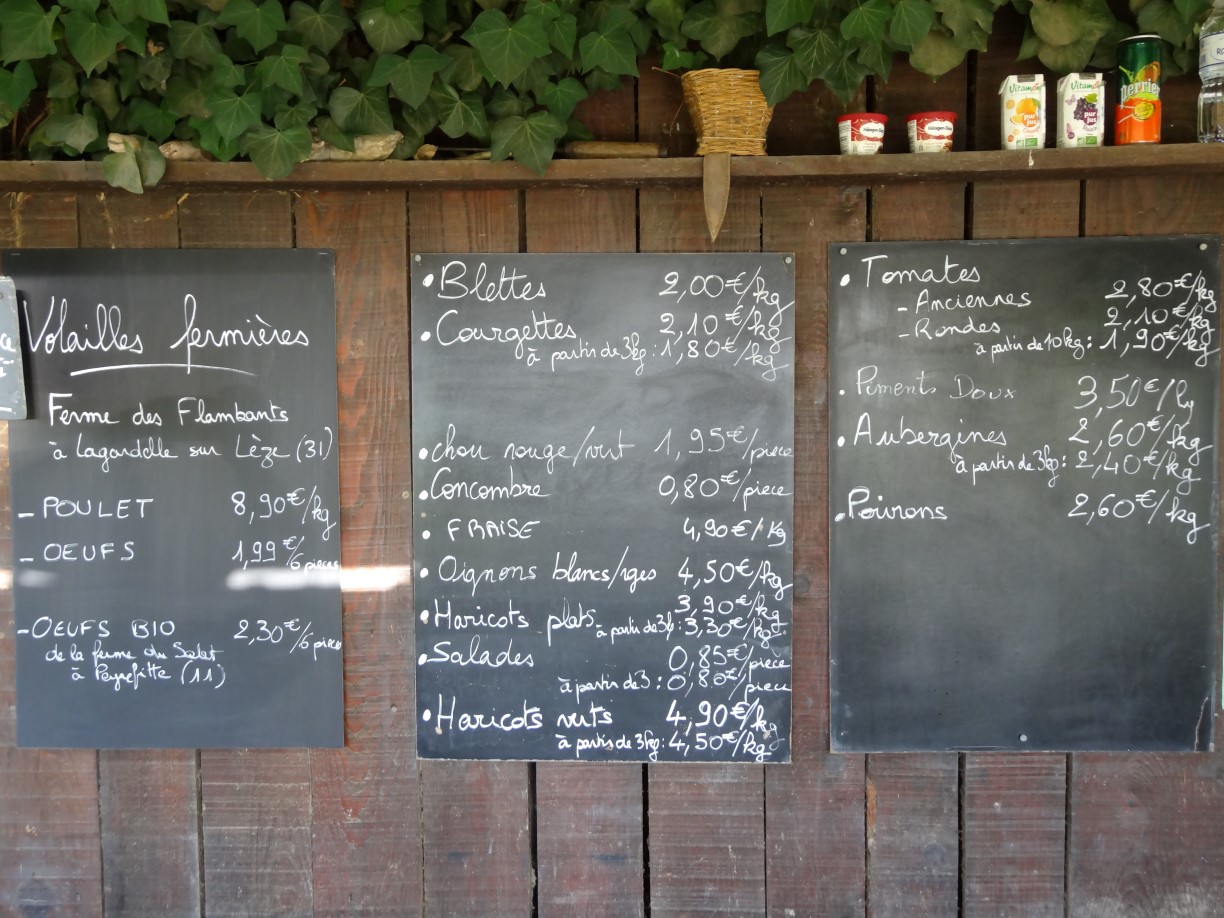 Volailles fermières
Ferme des Flambants
à Lagardelle sur Lèze (31)
- POULET 8,90€/kg
- OEUFS 1,99€/6 pieces
- OEUFS BIO 2,30€/6 pieces
de la ferme du Salet
à Peyrefitte (11)
• Blettes 2,00€/kg
• Courgettes 2,10€/kg
à partir de 3kg: 1,80€/kg
• chou rouge/vert 1,95€/piece
• Concombre 0,80€/piece
• FRAISE 4,90€/Kg
• Oignons blancs/rges 4,50€/kg
• Haricots plats 3,90€/kg
à partir de 3kg: 3,30€/kg
• Salades 0,85€/piece
à partir de 3: 0,80€/piece
• Haricots verts 4,90€/kg
à partir de 3kg: 4,50€/kg
• Tomates
- Anciennes 2,80€/kg
- Rondes 2,10€/kg
à partir de 10kg: 1,90€/kg
• Piments Doux 3,50€/kg
• Aubergines 2,60€/kg
à partir de 3kg: 2,40€/kg
• Poivrons 2,60€/kg
Häagen-Dazs
Häagen-Dazs
Vitamont
pur jus
Vitamont
pur jus
Perrier